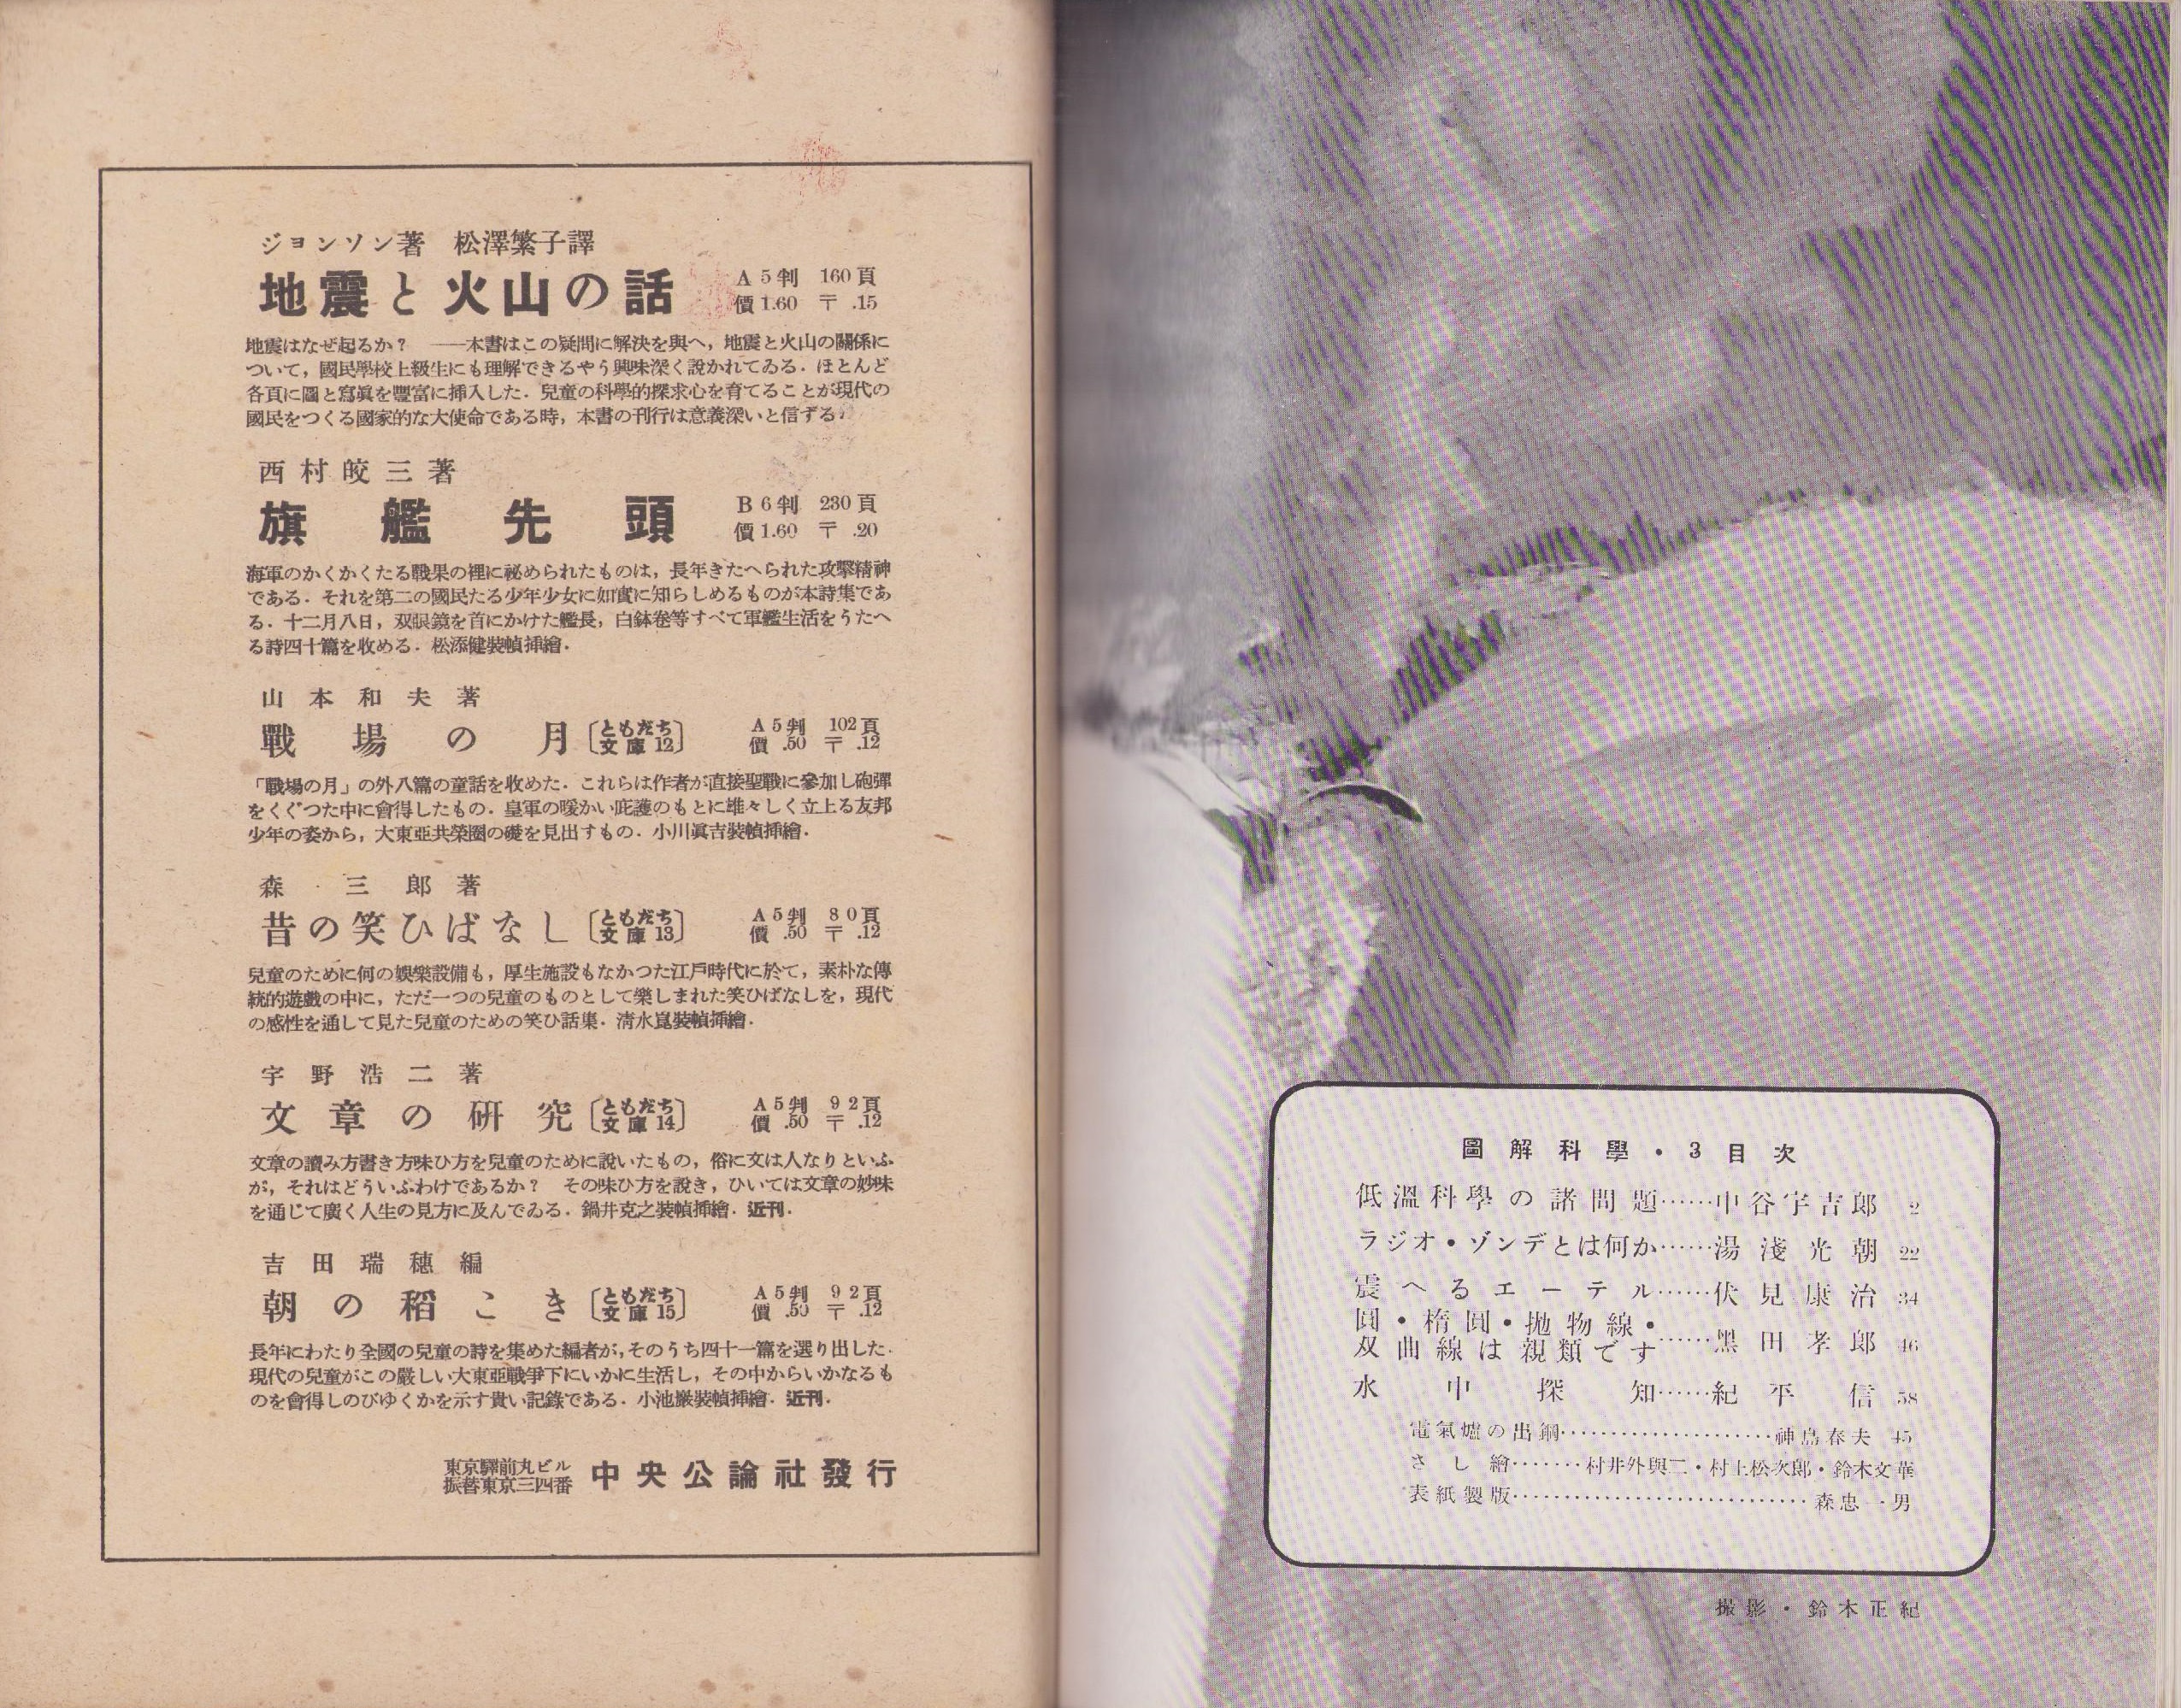 ジヨンソン著　松澤繁子譯
地震と火山の話　A5判　160頁
價1.60　〒　.15
地震はなぜ起るか？　――本書はこの疑問に解決を與へ，地震と火山の關係に
ついて，國民學校上級生にも理解できるやう興味深く說かれてゐる．ほとんど
各頁に圖と寫眞を豐富に挿入した．兒童の科學的探求心を育てることが現代の
國民をつくる國家的な大使命である時，本書の刊行は意義深いと信ずる．
西村皎三著
旗艦先頭　B6判　230頁
價1.60　〒　.20
海軍のかくかくたる戰果の裡に祕められたものは，長年きたへられた攻擊精神
である．それを第二の國民たる少年少女に如實に知らしめるものが本詩集であ
る．十二月八日，双眼鏡を首にかけた艦長，白鉢卷等すべて軍艦生活をうたへ
る詩四十篇を收める．松添健裝幀挿繪．
山本和夫著
戰場の月〔ともだち文庫12〕　A5判　102頁
價　.50　〒　.12
「戰場の月」の外八篇の童話を收めた．これらは作者が直接聖戰に參加し砲彈
をくぐつた中に會得したもの．皇軍の暖かい庇護のもとに雄々しく立上る友邦
少年の姿から，大東亞共榮圈の礎を見出すもの．小川眞吉裝幀挿繪．
森三郎著
昔の笑ひばなし〔ともだち文庫13〕　A5判　80頁
價　.50　〒　.12
兒童のために何の娛樂設備も，厚生施設もなかつた江戶時代に於て，素朴な傳
統的遊戲の中に，ただ一つの兒童のものとして樂しまれた笑ひばなしを，現代
の感性を通して見た兒童のための笑ひ話集．淸水崑裝幀挿繪．
宇野浩二著
文章の硏究〔ともだち文庫14〕　A5判　92頁
價　.50　〒　.12
文章の讀み方書き方味ひ方を兒童のために說いたもの，俗に文は人なりといふ
が，それはどういふわけであるか？　その味ひ方を說き，ひいては文章の妙味
を通じて廣く人生の見方に及んでゐる．鍋井克之裝幀挿繪．近刊．
吉田瑞穗編
朝の稻こき〔ともだち文庫15〕　A5判　92頁
價　.50　〒　.12
長年にわたり全國の兒童の詩を集めた編者が，そのうち四十一篇を選り出した．
現代の兒童がこの嚴しい大東亞戰爭下にいかに生活し，その中からいかなるも
のを會得しのびゆくかを示す貴い記錄である．小池巖裝幀挿繪．近刊．
東京驛前丸ビル
振替東京三四番　中央公論社發行
圖解科學・3目次
低溫科學の諸問題……中谷宇吉郎　2
ラジオ・ゾンデとは何か……湯淺光朝　22
震へるエーテル……伏見康治　34
圓・楕圓・抛物線・
双曲線は親類です……黑田孝郎　46
水中探知……紀平信　58
電氣爐の出鋼……神島春夫　45
さし繪……村井外與二・村上松次郎・鈴木文華
表紙製版……森忠一男
撮影・鈴木正紀